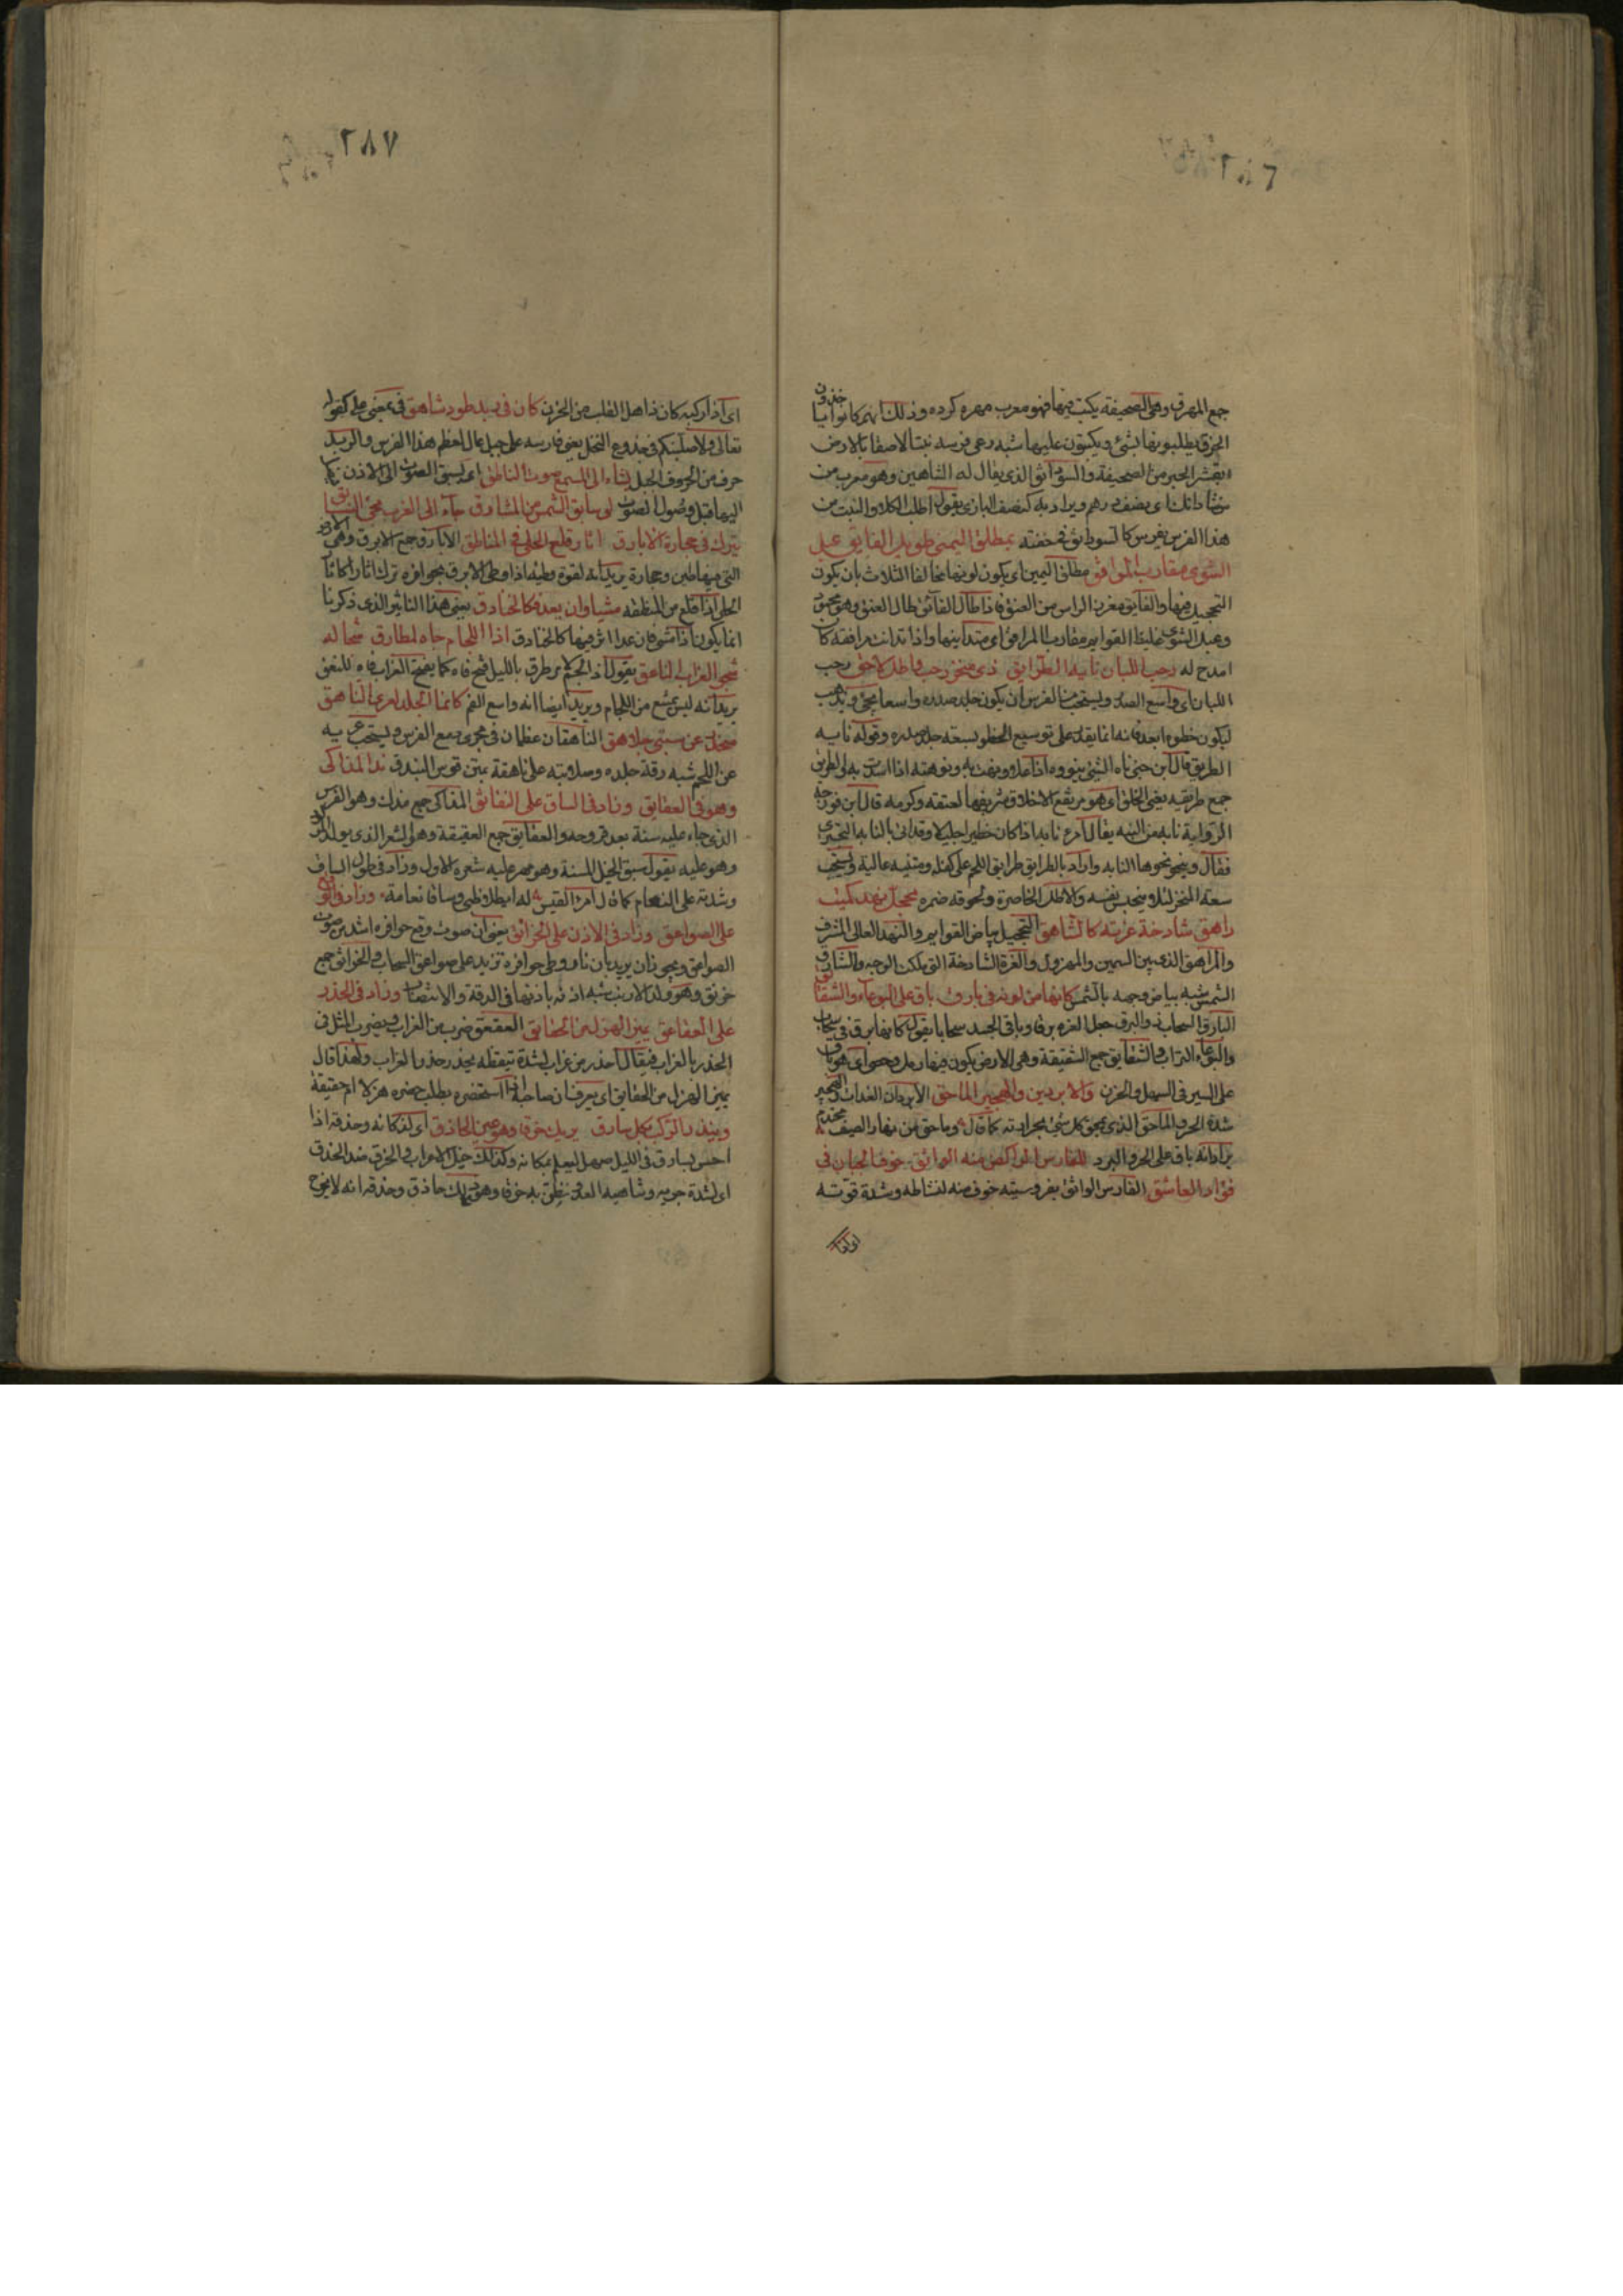 ٢٨٦
جمع المهرق وهى الصحيفة يكتب فيها فهو معرب مهره كرده وذلك انهم كانوا ياخذون
الخرق يطلبونها بشئ ويكتبون عليها شبه رعى فرسه نبتا لاصقا بالارض
بقشر الحبر من الصحيفة والسوذانق الذى يقال له الشاهين وهو معرب من
اى نصف درهم ويراد به كنصف البازى يقول اطلب الكلاء والنبت من
هذا الفرس بفرس كالسوذانق فى خفته بمطلق اليمنى طويل الفايق عبل
الشوى مقارب المرافق مطلق اليمين اى يكون لونها مخالفا الثلاث بان يكون
التحجيل فيها والفايق مغرز الراس من العنق فاذا طال الفائق طال العنق وهو محبوب
وعبل الشوى غليظ القوايم مقارب المرافق اى متدانيها واذا تدانت مرافقه كان
امدح له رحب اللبان نايه الطرايق ذى منخر رحب واطل لاحق رحب
اللبان اى واسع الصدر ويستحب من الفرس ان يكون جلد صدره واسعا يجئ ويذهب
ليكون خطوه ابعد فانه انما يقدر على توسيع الخطو بسعة جلد صدره وقوله نايه
الطريق قال ابن جنى ناه الشئ ينوه اذا علا ونهت به ونوهته اذا اشدت به والطرايق
جمع طريقه يعنى الخلق اى هو مرتفع الاخلاق وشريفها لعتقه وكرمه قال ابن فورجه
الرواية نابه من النبه يقال امر نابه اذا كان خطيرا جليلا وقد اتى بالنابه البحترى
فقال وينحو نحوها النابه واراد بالطرايق طرايق اللحم على كفله ومتنيه عالية ويستحب
سعة المنخر لئلا يحبس نفسه والاطل الخاصرة ولحوقه ضمره محجل نهد كميت
زاهق شادخة غرته كالشاهق التحجيل بياض القوايم والنهد العالى المشرف
والزاهق الذى بين السمين والمهزول والغرة الشادخة التى ملأت الوجه والشارق
الشمس شبه بياض وجهه بالشمس كانها من لونه فى بارق باق على البوغاء والشقائق
البارق السحاب ذو البرق جعل الغره برقا وباقى الجسد سحابا يقول كانها برق فى سحاب
والبوغاء التراب والشقايق جمع الشقيقة وهى الارض يكون فيها رمل وحصى اى هو باق
على السير فى السهل والحزن والابردين والهجير الماحق الابردان الغداة والعشى والهجير
شدة الحر والماحق الذى يمحق كل شئ بحرارته كما قال وماحق من نهار الصيف محتدم
يراد انه باق على الحر والبرد للفارس الراكض منه الواثق خوف الجبان فى
فؤاد العاشق الفارس الواثق بفروسيته خوف منه لنشاطه وشدة قوته
٢٨٧
اى اذا ركبه كان ذاهل القلب من الحزن كان فى ريد طود شاهق فى بمعنى على كقوله
تعالى ولاصلبنكم فى جذوع النخل يعنى فارسه على جبل عال لعظم هذا الفرس والريد
حرف من حروف الجبل يشاء الى المسمع صوت الناطق اى يسبق الصوت الى الاذن
اليها قبل وصول الصوت لو سابق الشمس من المشارق جاء الى الغرب مجئ السابق
يترك فى حجارة الابارق اثار قلع الحلى فى المناطق الابارق جمع الابرق وهى الارض
التى فيها طين وحجارة يريد انه لقوة وطيه اذا وطئ الابرق بحوافره ترك اثارا كاثار
الحلى اذا قلع من المنطقة مشيا وان يعد فكالخنادق يعنى هذا التاثير الذى ذكرنا
انما يكون اذا مشى فان عدا اثر فيها كالخنادق اذا اللجام جاءه لطارق شحا له
شحو الغراب الناعق يقول اذا الجم لامر طرق بالليل فتح فاه كما يفتح الغراب فاه للنعق
يريد انه ليس يمتنع من اللجام ويريد ايضا انه واسع الفم كانما الجلد لعرى الناهق
منحدر عن سيتى جلاهق الناهقان عظمان فى مجرى دمع الفرس ويستحب عريه
عن اللحم شبه رقة جلده وصلابته على ناهقة بمتن قوس البندق بذ المذاكى
وهو فى العقايق وزاد فى الساق على النقانق المذاكى جمع مذك وهو الفرس
الذى جاء عليه سنة بعد قروحه والعقايق جمع العقيقة وهو الشعر الذى يولد المولود
وهو عليه يقول سبق الخيل المسنة وهو مهر عليه شعره الاول وزاد فى طول الساق
وشدته على النعام كما قال امرؤ القيس له ايطلا ظبى وساقا نعامة وزاد فى الوقع
على الصواعق وزاد فى الاذن على الخرانق يعنى ان صوت وقع حوافره اشد من صوت
الصواعق ويجوز ان يريد بان نار وطئ حوافره تزيد على صواعق السحاب والخرانق جمع
خرنق وهو ولد الارنب شبه اذنه باذنها فى الدقة والانتصاب وزاد فى الحذر
على العقاعق يميز الهزل من الحقايق العقعق ضرب من الغراب ويضرب المثل فى
الحذر بالغراب فيقال احذر من غراب لشدة تيقظه يحذر حذر الغراب ولهذا قال
يميز الهزل من الحقايق اى يعرف ان صاحبه اذا استحضره يطلب حضره هزلا ام حقيقة
وينذر الركب بكل سارق يريك خرقا وهو عين الحاذق اى لذكائه وحذقه اذا
احس بسارق فى الليل صهل ليعلم بمكانه وكذلك خيل الاعراب والخرق ضد الحذق
اى لشدة جريه وتناهيه العدو يظن به خرقا وهو مع ذلك حاذق وحذقه انه لا يخرج